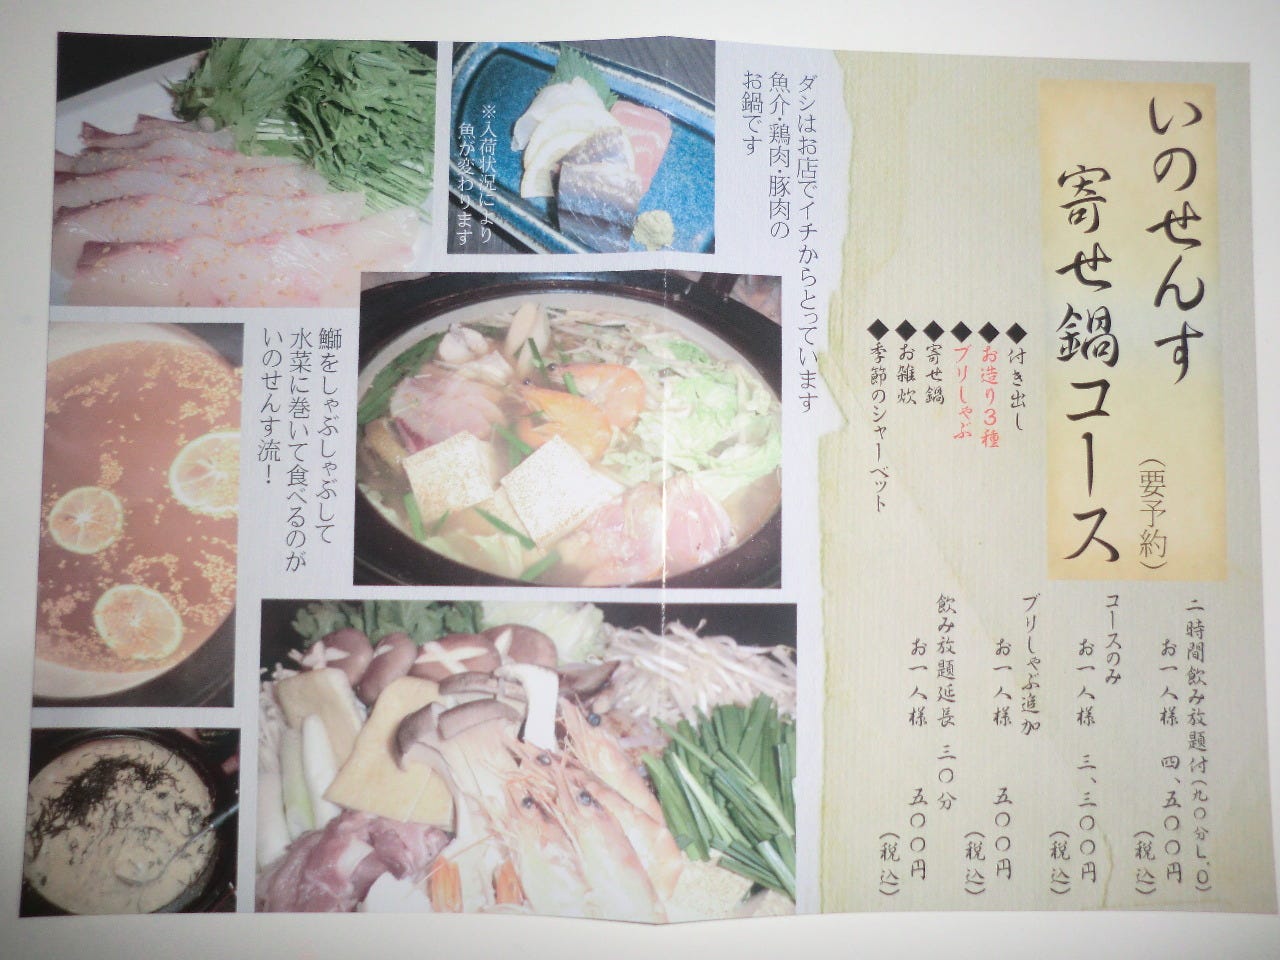 いのせんす
寄せ鍋コース
（要予約）
◆付き出し
◆お造り3種
◆ブリしゃぶ
◆寄せ鍋
◆お雑炊
◆季節のシャーベット
二時間飲み放題付（九〇分L.O）
お一人様 四、五〇〇円
（税込）
コースのみ
お一人様 三、三〇〇円
（税込）
ブリしゃぶ追加
お一人様 五〇〇円
（税込）
飲み放題延長 三〇分
お一人様 五〇〇円
（税込）
ダシはお店でイチからとっています
魚介・鶏肉・豚肉の
お鍋です
※入荷状況により
魚が変わります
鰤をしゃぶしゃぶして
水菜に巻いて食べるのが
いのせんす流！